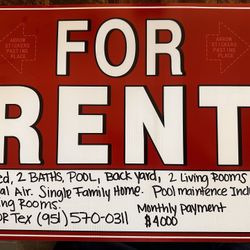 ARROW STICKERS PASTING PLACE
ARROW STICKERS PASTING PLACE
FOR
RENT
2 BATHS, POOL, Back yard, 2 Living Rooms
Air. Single Family Home. Pool maintence
Rooms. Monthly payment
Tex (951) 570-0311 $4000